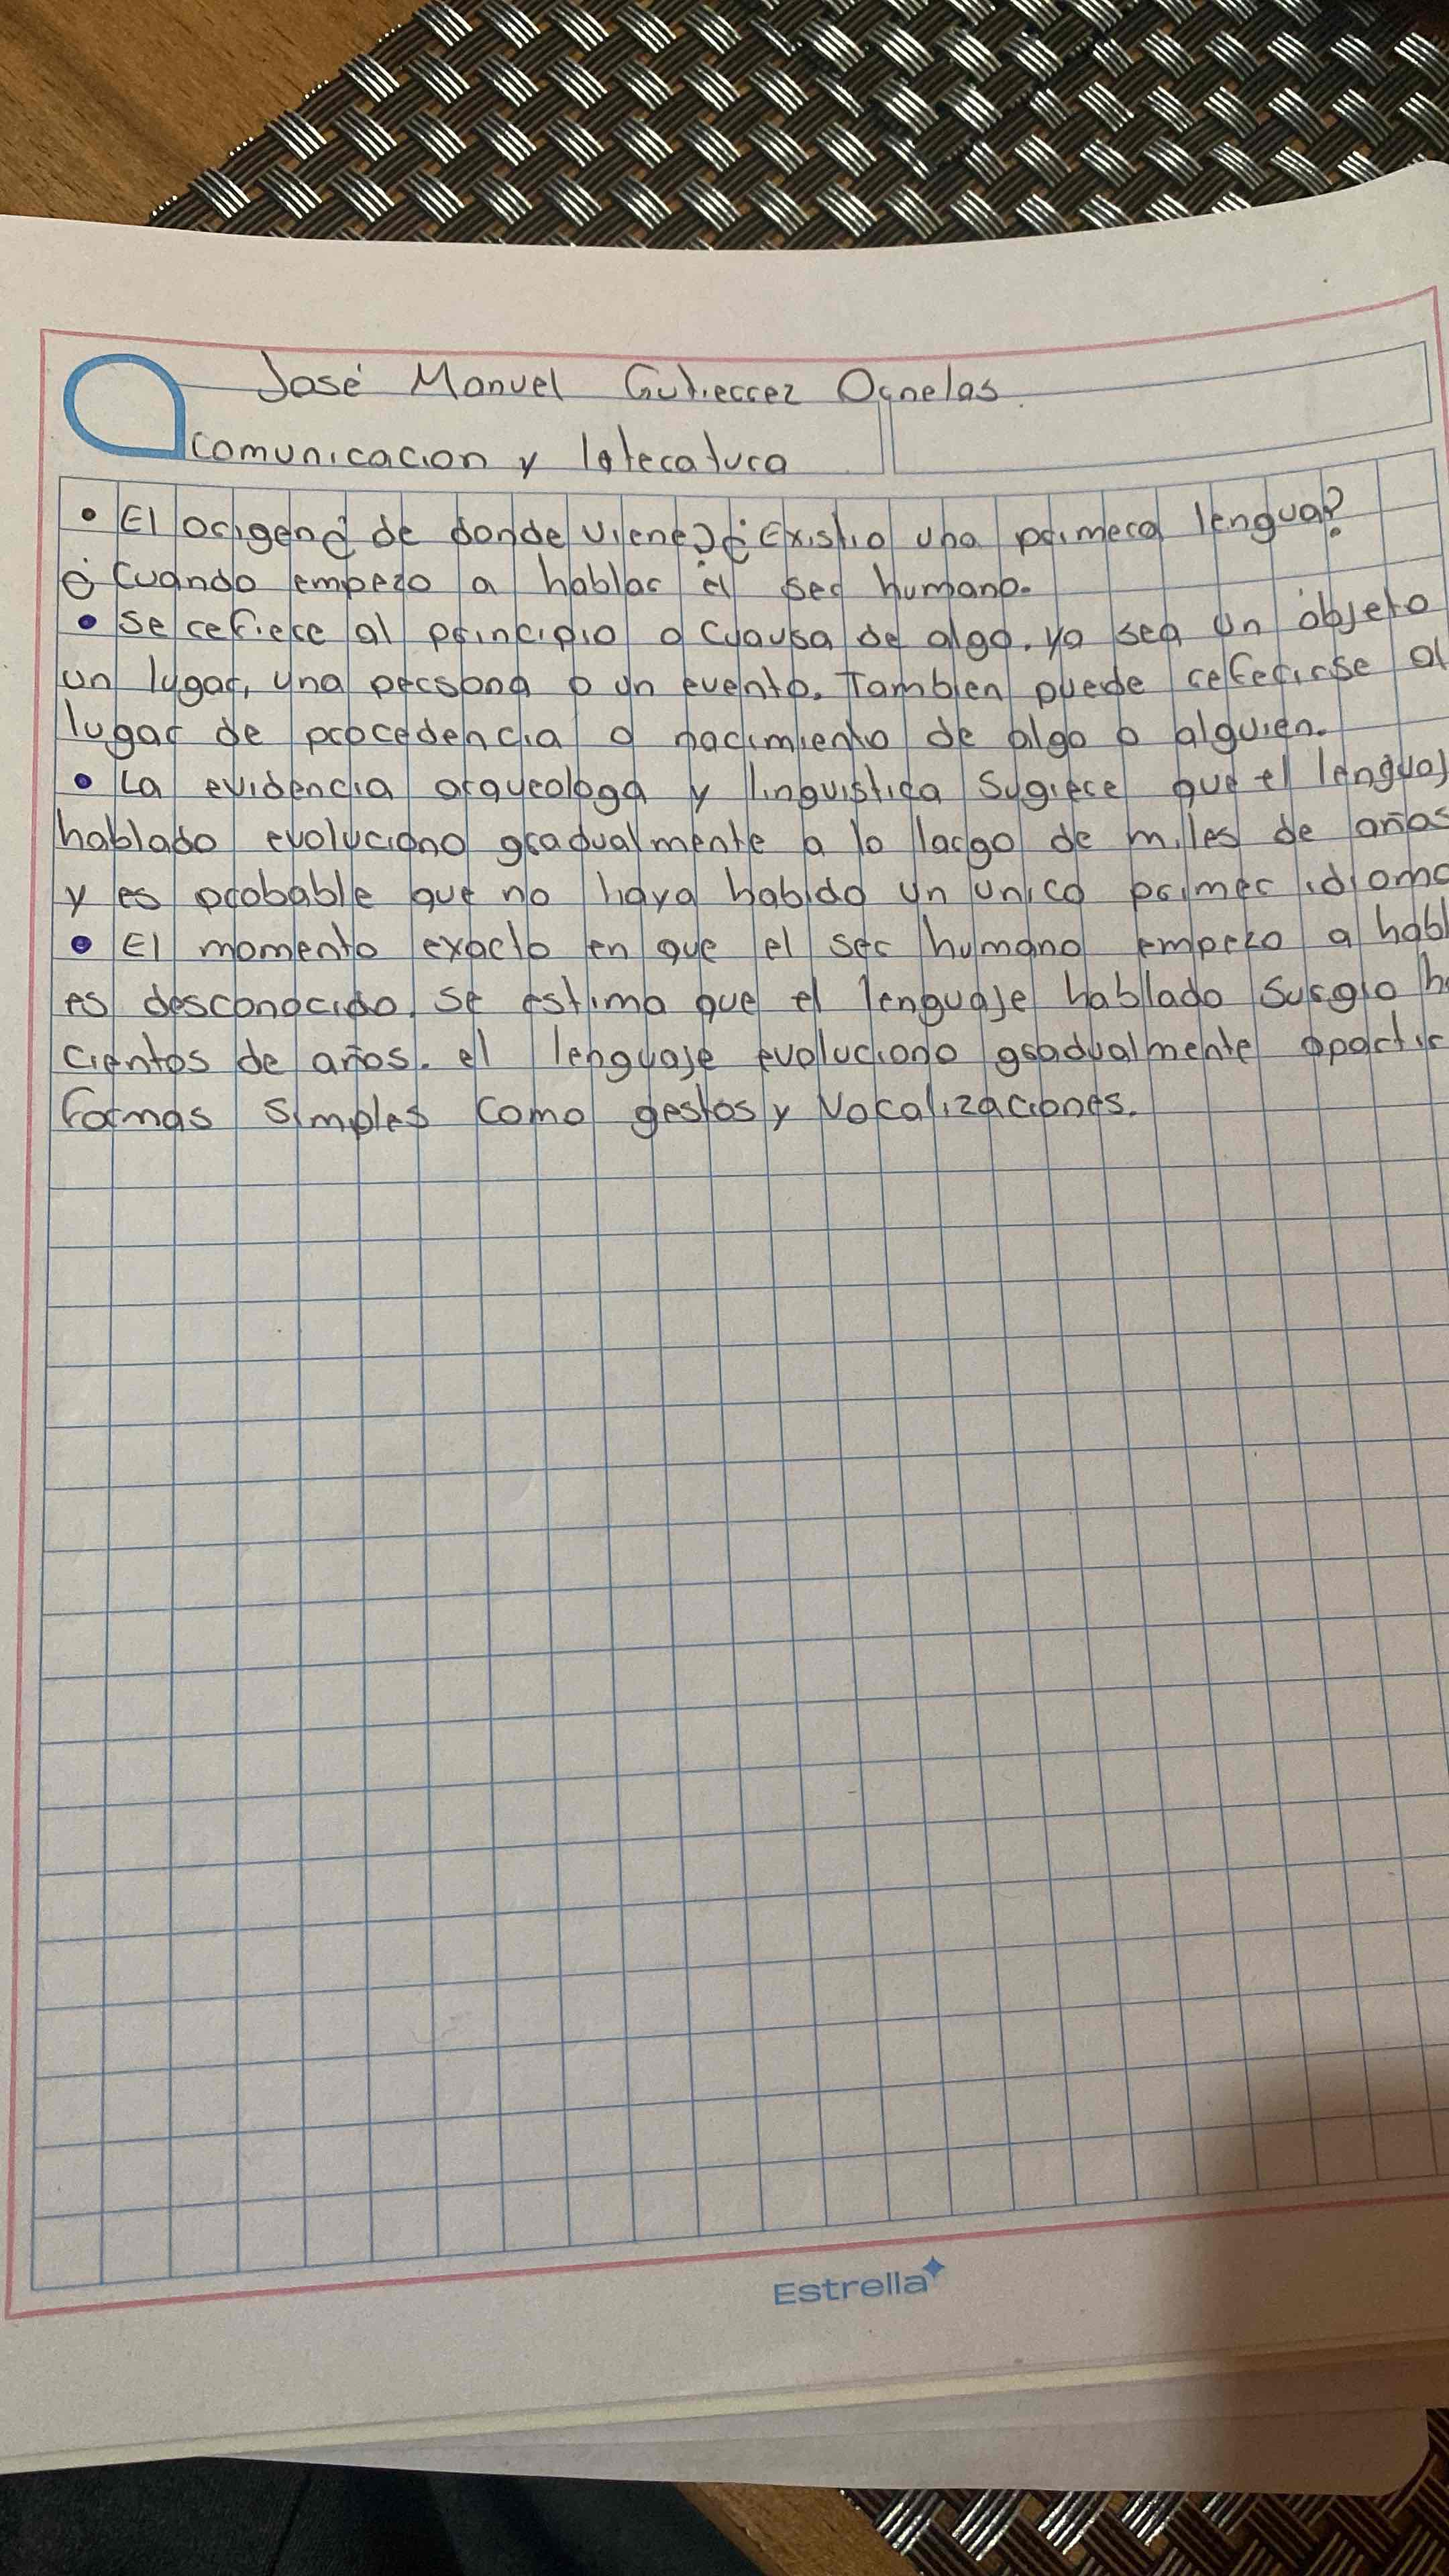 José Manuel Gutierrez Ornelas.
comunicacion y lateratura
• El origen ¿ de donde viene? ¿Existio una primera lengua?
¿ Cuando empezo a hablar el ser humano.
• Se refiere al principio o cuausa de algo. ya sea un objeto
un lugar, una persona o un evento. Tambien puede referirse al
lugar de procedencia o nacimiento de algo o alguien.
• La evidencia arqueologa y linguistica sugiere que el lenguaj
hablado evoluciono gradualmente a lo largo de miles de años
y es probable que no haya habido un unico primer idioma
• El momento exacto en que el ser humano empezo a habl
es desconocido. se estima que el lenguaje hablado surgio h
cientos de años. el lenguaje evoluciono gradualmente apartir
formas simples como gestos y vocalizaciones.
Estrella